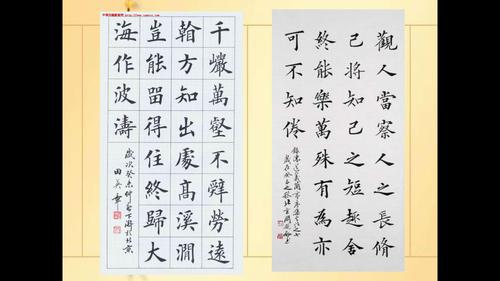 千巖萬壑不辭勞遠
看方知出處高溪澗
豈能畱得住終歸大
海作波濤
歲次癸未仲春下浣於北京
田英章
觀人當察人之長脩
己將知己之短趣舍
終能樂萬殊有為亦
可不知倦